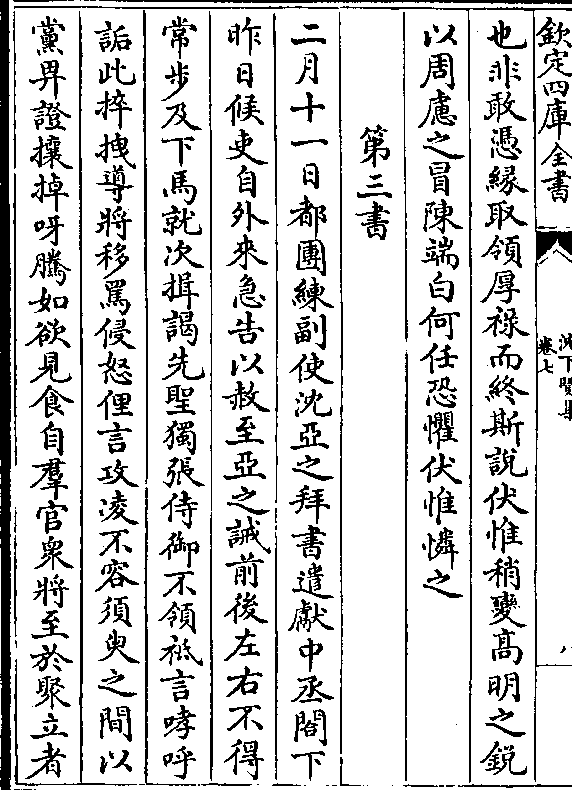 欽定四庫全書
沈下賢集
卷七
八
也非敢憑緣取領厚祿而終斯說伏惟稍變高明之銳
以周慮之冒陳端白何任恐懼伏惟憐之
第三書
二月十一日都團練副使沈亞之拜書遣獻中丞閤下
昨日候吏自外來急告以赦至亞之誡前後左右不得
常步及下馬就次揖謁先聖獨張侍御不領祗言哮呼
詬此捽拽導將移罵侵怒俚言攻凌不容須臾之間以
黨畀證攘掉呀騰如欲見食自羣官衆將至於聚立者